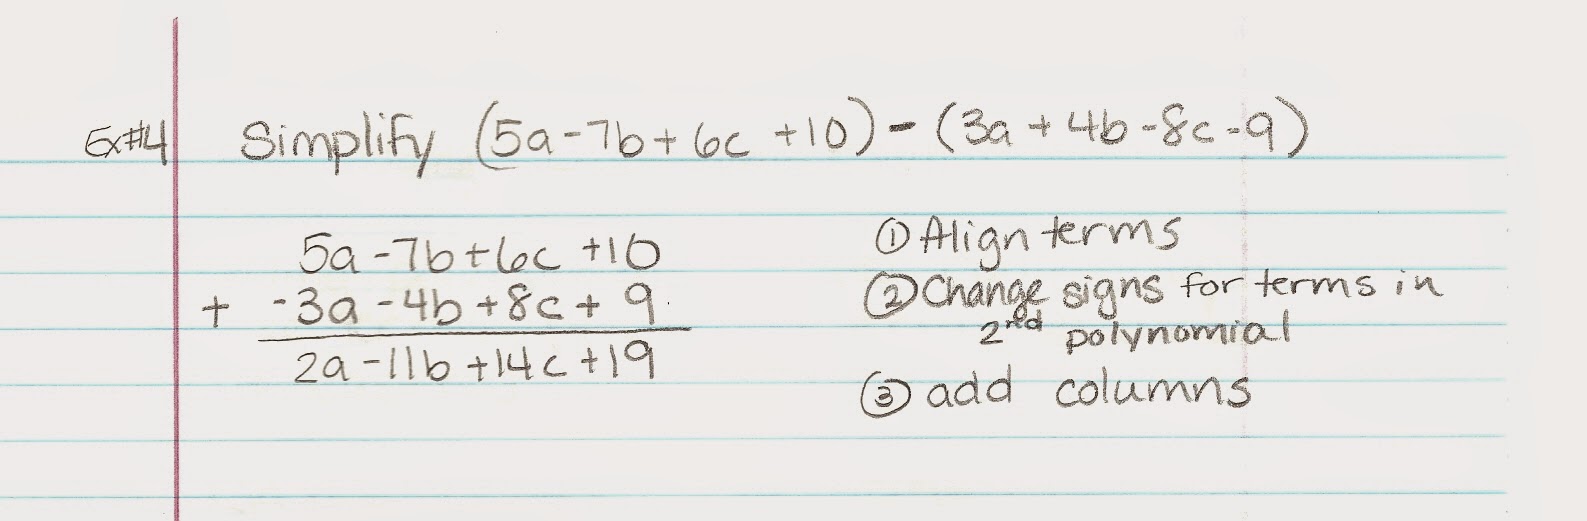 Ex#4 Simplify (5a-7b+6c +10) - (3a+4b-8c-9)
5a-7b+6c +10
+ -3a -4b+8c+ 9
2a-11b+14c+19
① Align terms
② Change signs for terms in
2nd polynomial
③ add columns